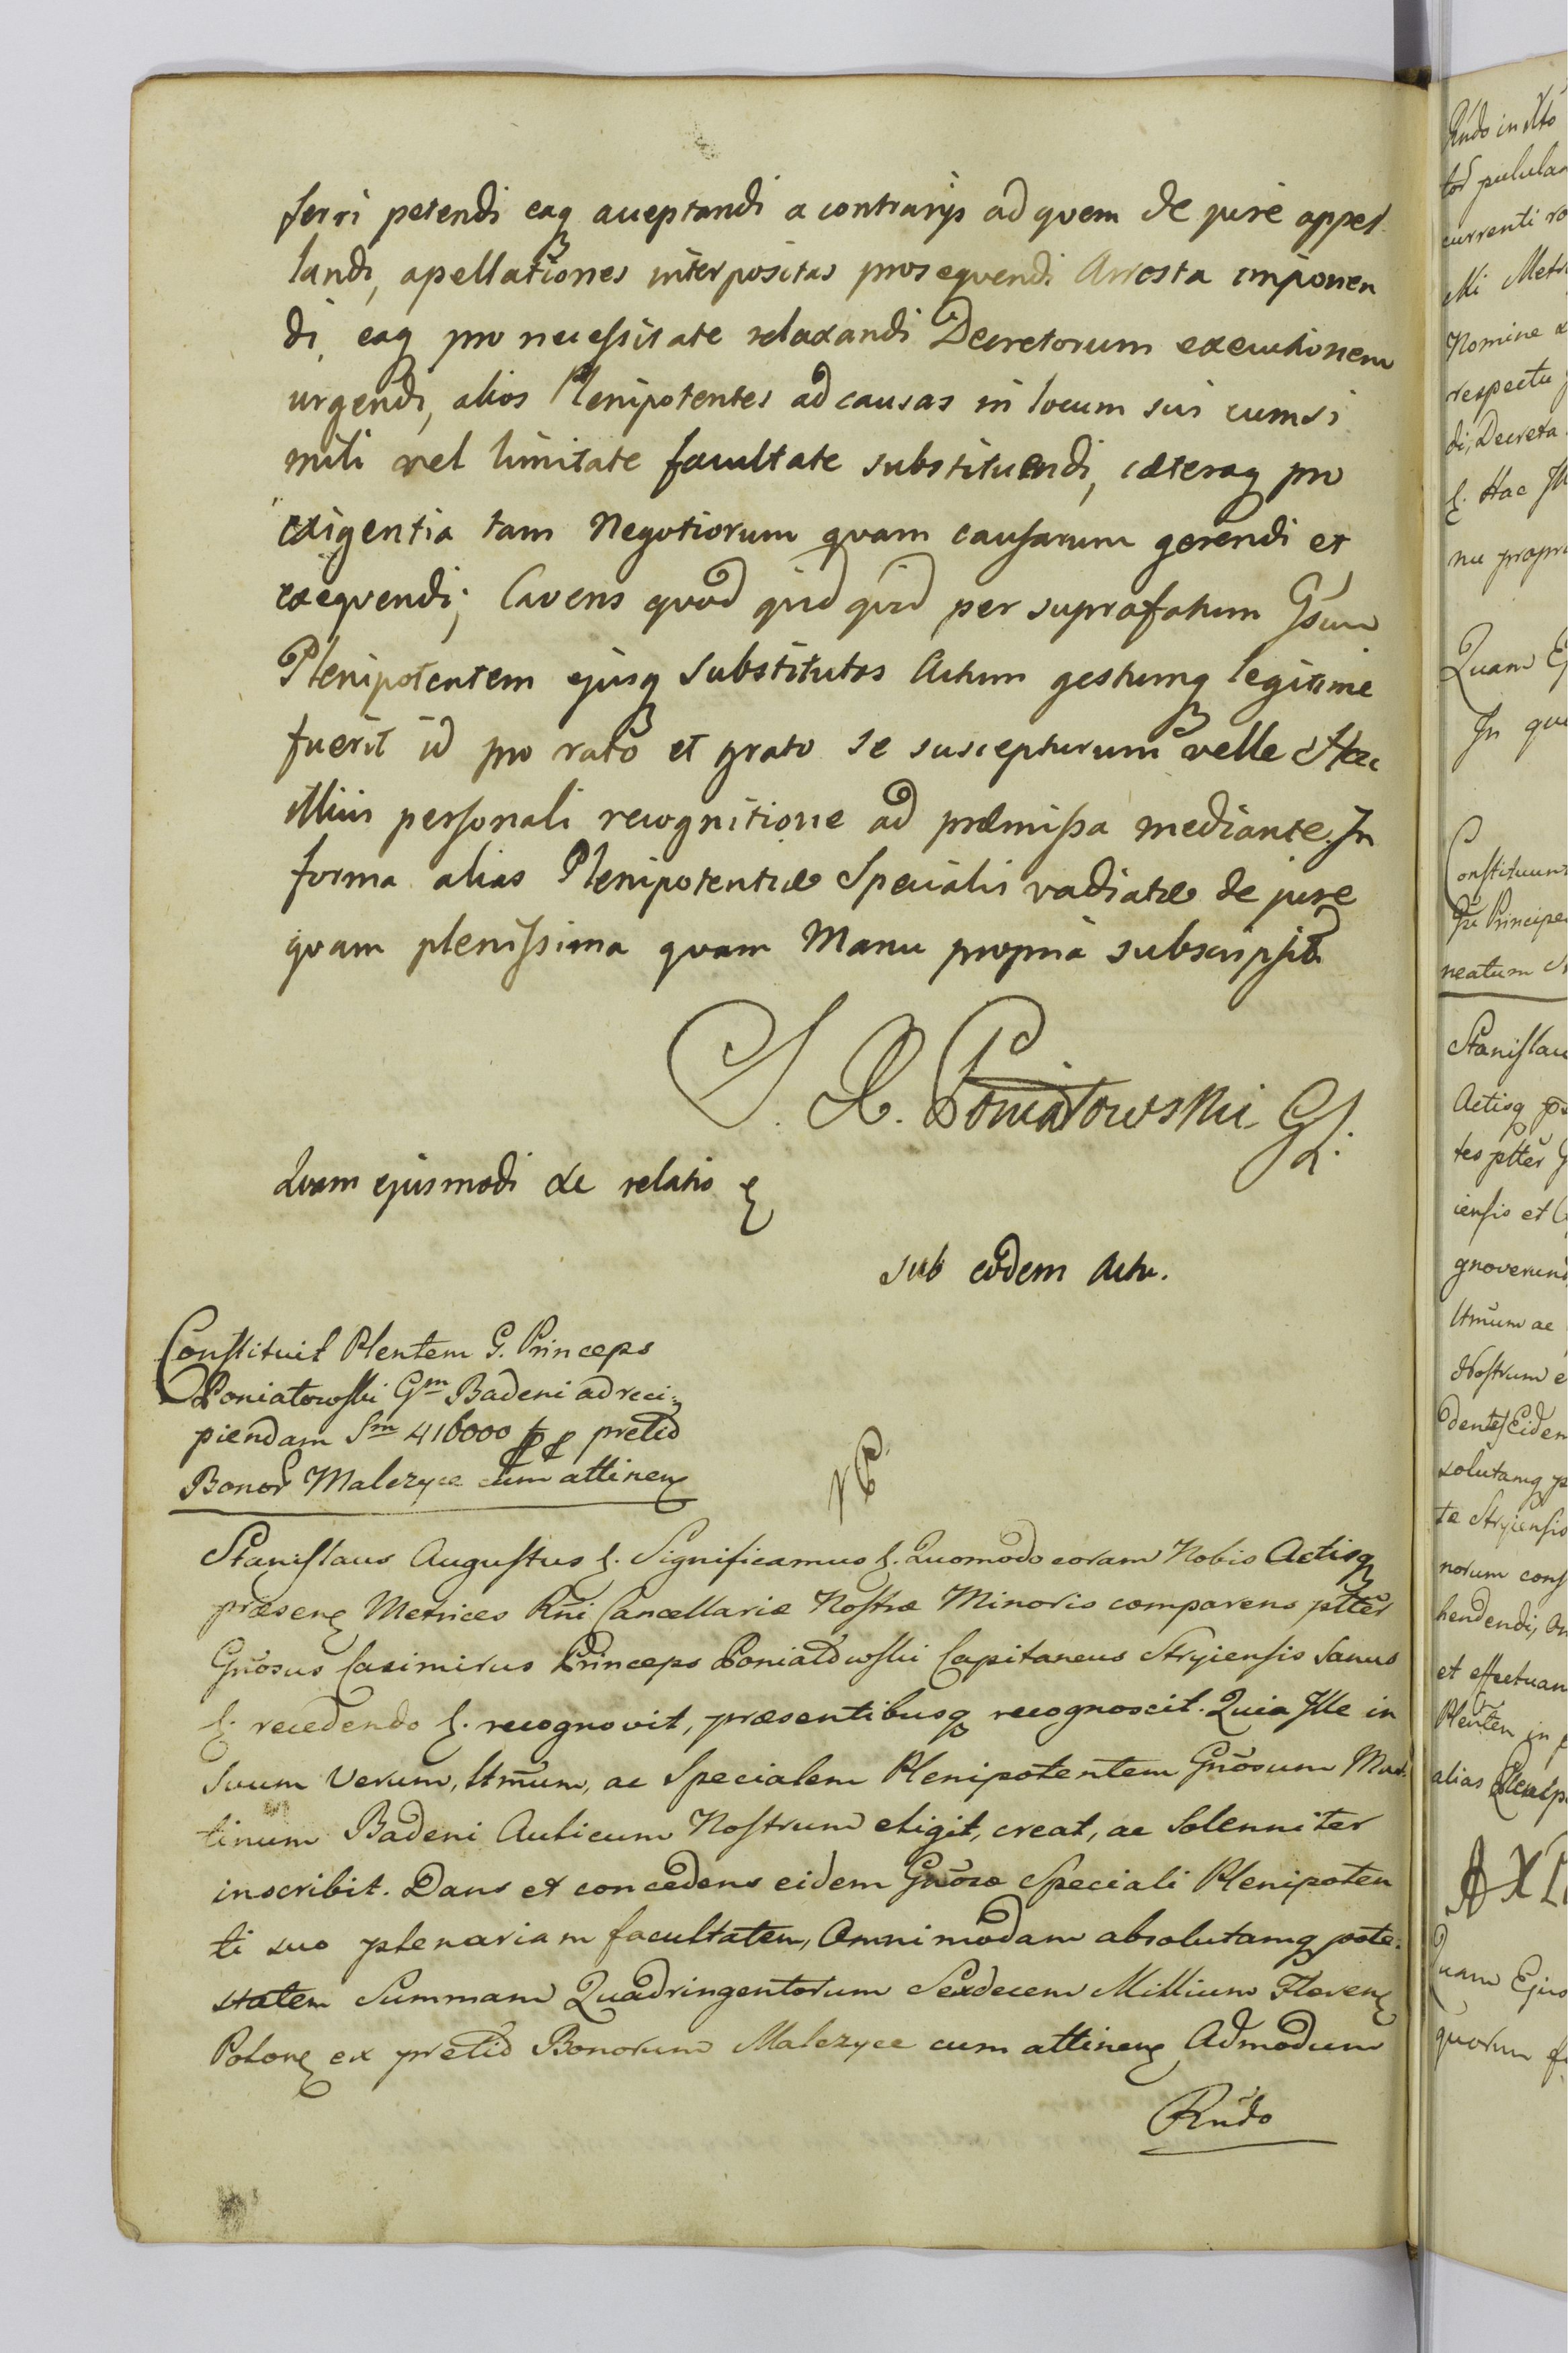 ferri petendi eaq acceptandi a contrarijs ad quem de jure appel
landi, apellationes interpositas prosequendi Arresta imponen
di, eaq pro necessitate relaxandi Decretorum executionem
urgendi, alios Plenipotentes ad causas in locum sui cum si
mili vel limitate facultate substituendi, cæteraq pro
exigentia tam Negotiorum quam causarum gerendi et
exequendi; Cavens quod quid quid per suprafatum Gsum
Plenipotentem ejusq Substitutos Actum gestumq legitime
fuerit id pro rato et grato se suscepturum velle Hac
illius personali recognitione ad præmissa mediante. In
forma alias Plenipotentiæ Specialis vadiatæ de jure
quam plenissima quam Manu propria subscripsit
Poniatowski
Quam ejusmodi &c relatio
Sub eodem Actu.
Constituit Plentem G. Princeps
Poniatowski Gm Badeni ad reci=
piendam Sm 416000 pretio
Bonor Malczyce cum attinen
Stanislaus Augustus &. Significamus &. Quomodo coram Nobis Actisq
præsen Metrices Rni Cancellariæ Nostræ Minoris comparens pltter
Gnosus Casimirus Princeps Poniatowski Capitaneus Stryiensis Sanus
&. recedendo &. recognovit, præsentibusq recognoscit. Quia Ille in
Suum Verum, Ltmum, ac Specialem Plenipotentem Gnosum Mar=
tinum Badeni Aulicum Nostrum eligit, creat, ac Solenniter
inscribit. Dans et concedens eidem Gnoso Speciali Plenipoten
ti suo plenariam facultatem, Omnimodam absolutamq pote=
statem Summam Quadringentorum Sexdecem Millium Floren
Polon ex pretio Bonorum Malczyce cum attinen Admodum
Rndo
Rndo in
pulula
currenti
Mi Metri
Nomine
respectu
di, Decreta
&. Hac
nu propr
Quam
In qu
Constituunt
Principe
neatum
Stanislau
Actisq
tes pltter
iensis et
gnoverun
Ltmum ac
Nostrum e
dentes Eidem
solutamq p
te Stryiensis
norum cons
hendendi,
et effectuan
Plenten in
alias Plenip
Quam Ejus
quorum